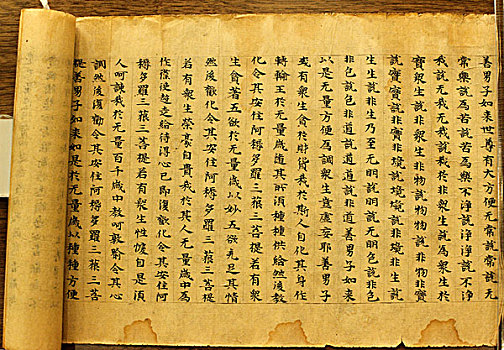 善男子如來世尊有大方便无常說常常說无
常樂說為苦說苦為樂不淨說淨淨說不淨
我說无我无我說我於非眾生說為眾生於
實眾生說非眾生非物說物物說非物非實
說實實說非實非境說境境說非境非生說
生生說非生乃至无明說明明說无明色說非色
非色說色非道說道道說非道善男子如來
以是无量方便為調眾生豈虛妄耶善男子
或有眾生貪於財貨我於其人自化其身作
轉輪王於无量歲隨其所須種種供給然後教
化令其安住阿耨多羅三藐三菩提若有眾
生貪著五欲於无量歲以妙五欲充足其情
然後勸化令其安住阿耨多羅三藐三菩提
若有眾生榮豪自貴我於其人无量歲中為
作僕使趍走給侍得心已即復勸化令其安住阿
耨多羅三藐三菩提若有眾生性悷自是須
人呵諫我於无量百千歲中教呵敦喻令其心
調然後復勸令其安住阿耨多羅三藐三菩
提善男子如來如是於无量歲以種種方便